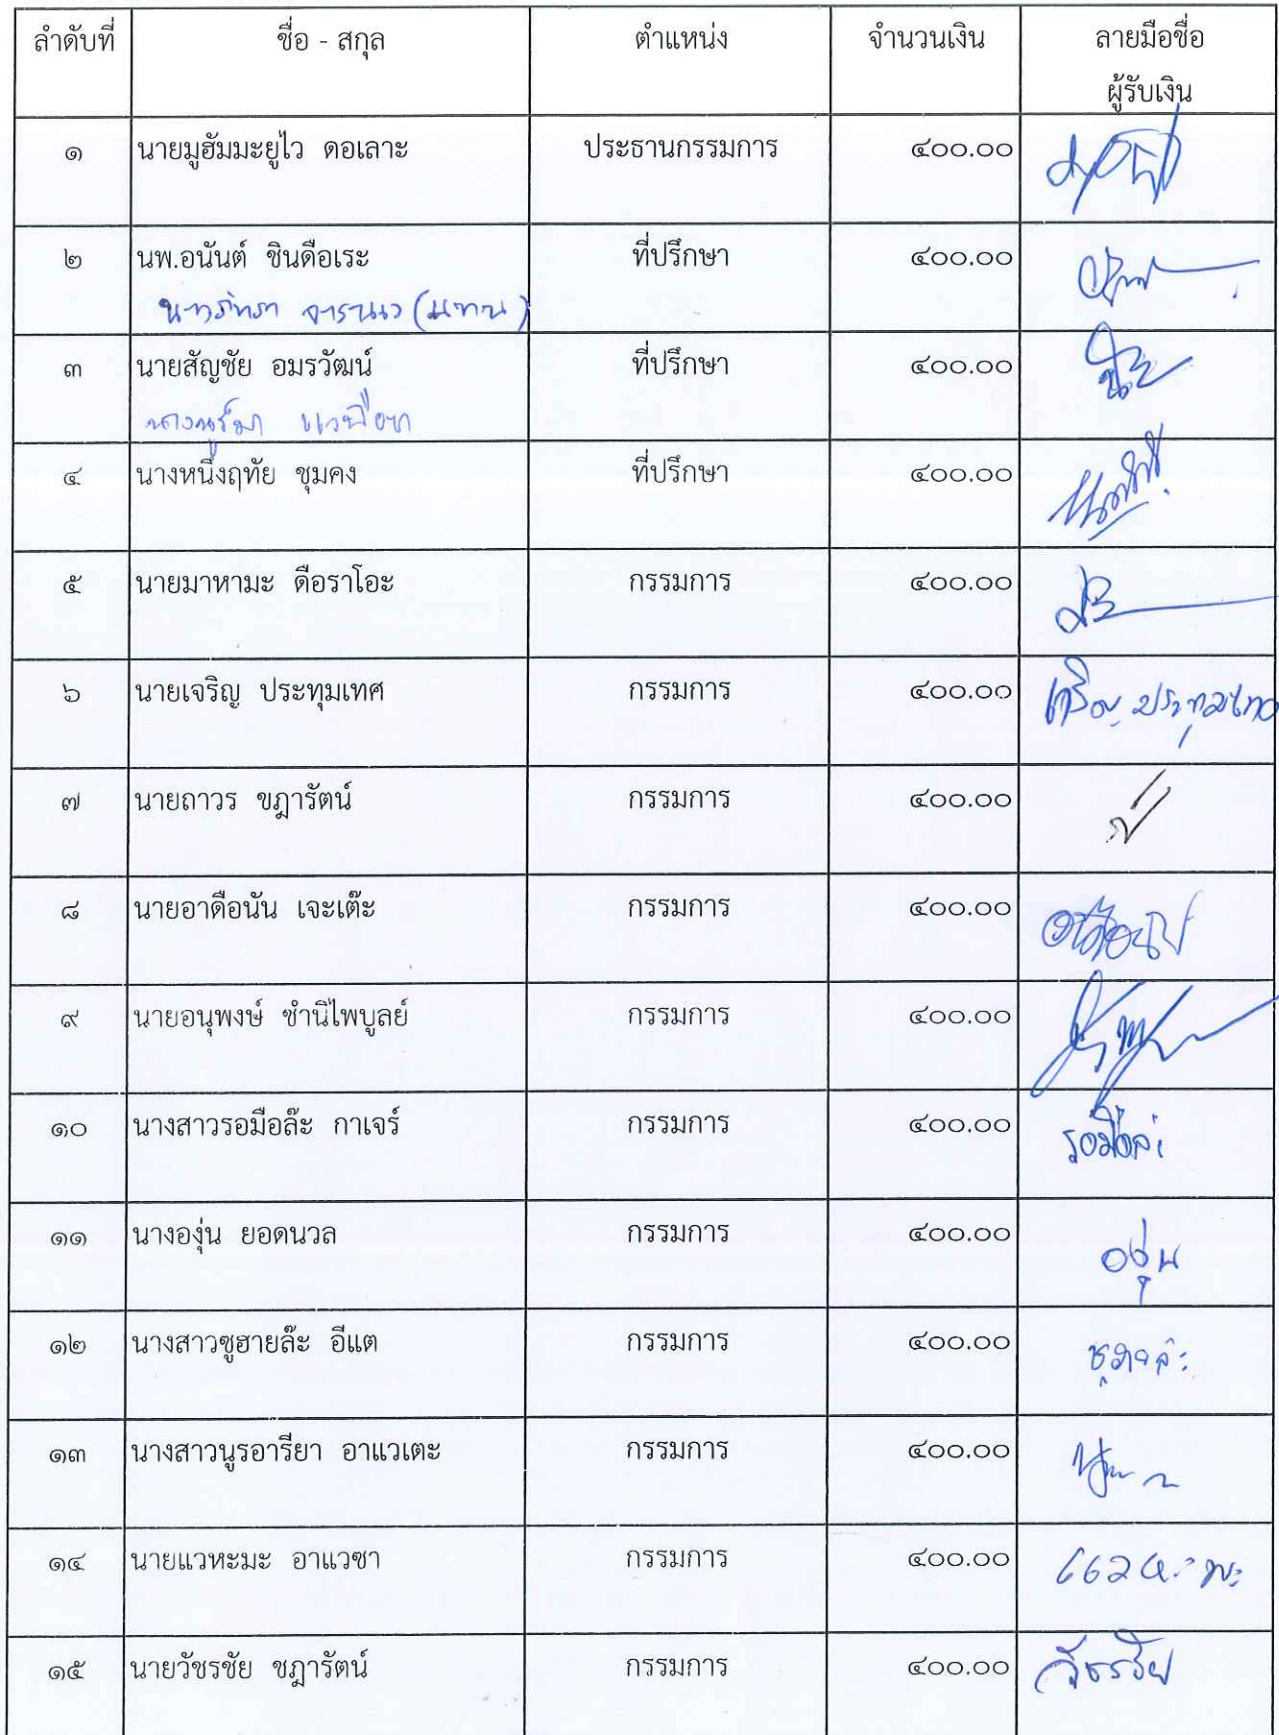 ลำดับที่ ชื่อ - สกุล ตำแหน่ง จำนวนเงิน ลายมือชื่อ
ผู้รับเงิน
๑ นายมูฮัมมะยูไว ดอเลาะ ประธานกรรมการ ๔๐๐.๐๐
๒ นพ.อนันต์ ชินดือเระ ที่ปรึกษา ๔๐๐.๐๐
(แทน)
๓ นายสัญชัย อมรวัฒน์ ที่ปรึกษา ๔๐๐.๐๐
๔ นางหนึ่งฤทัย ชุมคง ที่ปรึกษา ๔๐๐.๐๐
๕ นายมาหามะ ดือราโอะ กรรมการ ๔๐๐.๐๐
๖ นายเจริญ ประทุมเทศ กรรมการ ๔๐๐.๐๐
๗ นายถาวร ขฎารัตน์ กรรมการ ๔๐๐.๐๐
๘ นายอาดือนัน เจะเต๊ะ กรรมการ ๔๐๐.๐๐
๙ นายอนุพงษ์ ชำนิไพบูลย์ กรรมการ ๔๐๐.๐๐
๑๐ นางสาวรอมือล๊ะ กาเจร์ กรรมการ ๔๐๐.๐๐
๑๑ นางองุ่น ยอดนวล กรรมการ ๔๐๐.๐๐ องุ่น
๑๒ นางสาวซูฮายล๊ะ อีแต กรรมการ ๔๐๐.๐๐
๑๓ นางสาวนูรอารียา อาแวเตะ กรรมการ ๔๐๐.๐๐
๑๔ นายแวหะมะ อาแวซา กรรมการ ๔๐๐.๐๐ แวหะมะ
๑๕ นายวัชรชัย ชฎารัตน์ กรรมการ ๔๐๐.๐๐ วัชรชัย